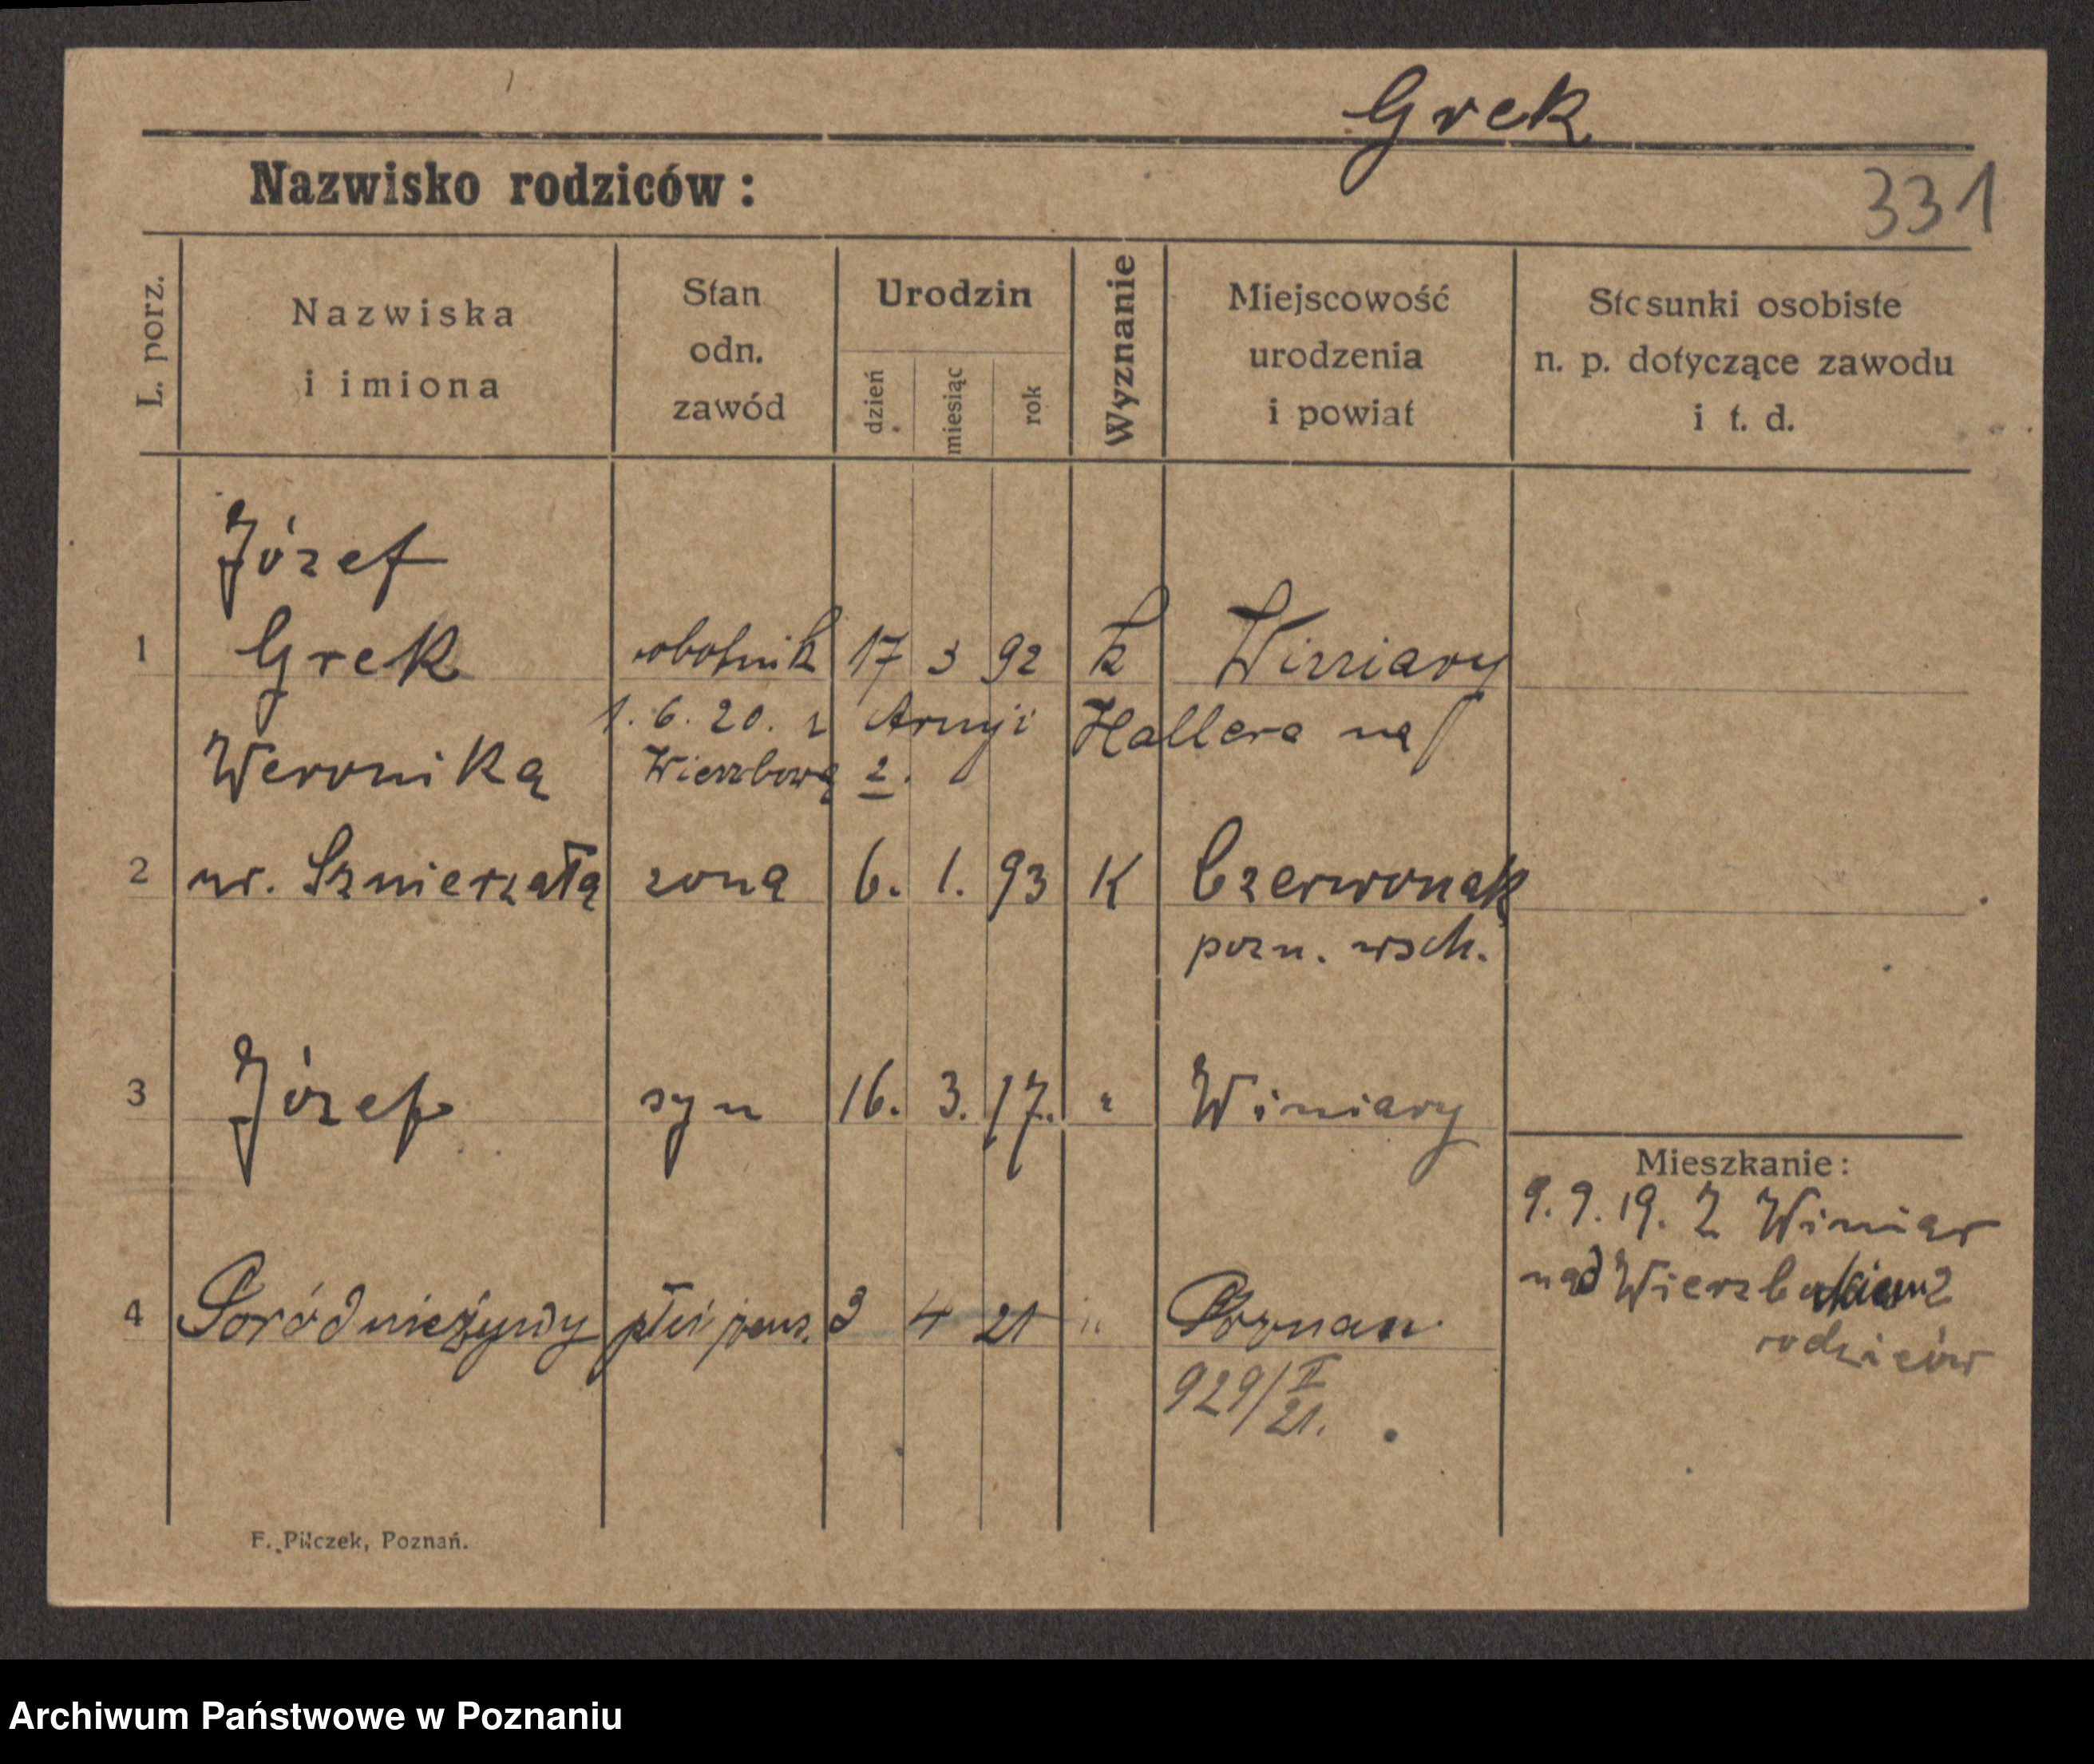 Grek
Nazwisko rodziców:
331
L. porz.
Nazwiska
i imiona
Stan
odn.
zawód
Urodzin
dzień
miesiąc
rok
Wyznanie
Miejscowość
urodzenia
i powiat
Stosunki osobiste
n. p. dotyczące zawodu
i t. d.
Józef
1 Grek robotnik 17 3 92 k Winiary
1. 6. 20. z Armji Hallera na
Weronika Wierzbową 2.
2 ur. Szmierzała zona 6. 1. 93 K Czerwonak
pozn. wsch.
3 Józef syn 16. 3. 17. " Winiary
Mieszkanie:
9. 9. 19. Z Winiar
nad Wierzbakiem 2
rodziców
4 Poród nieżywy płci 3 4 21 " Poznan
929/II
21.
F. Pilczek, Poznań.
Archiwum Państwowe w Poznaniu